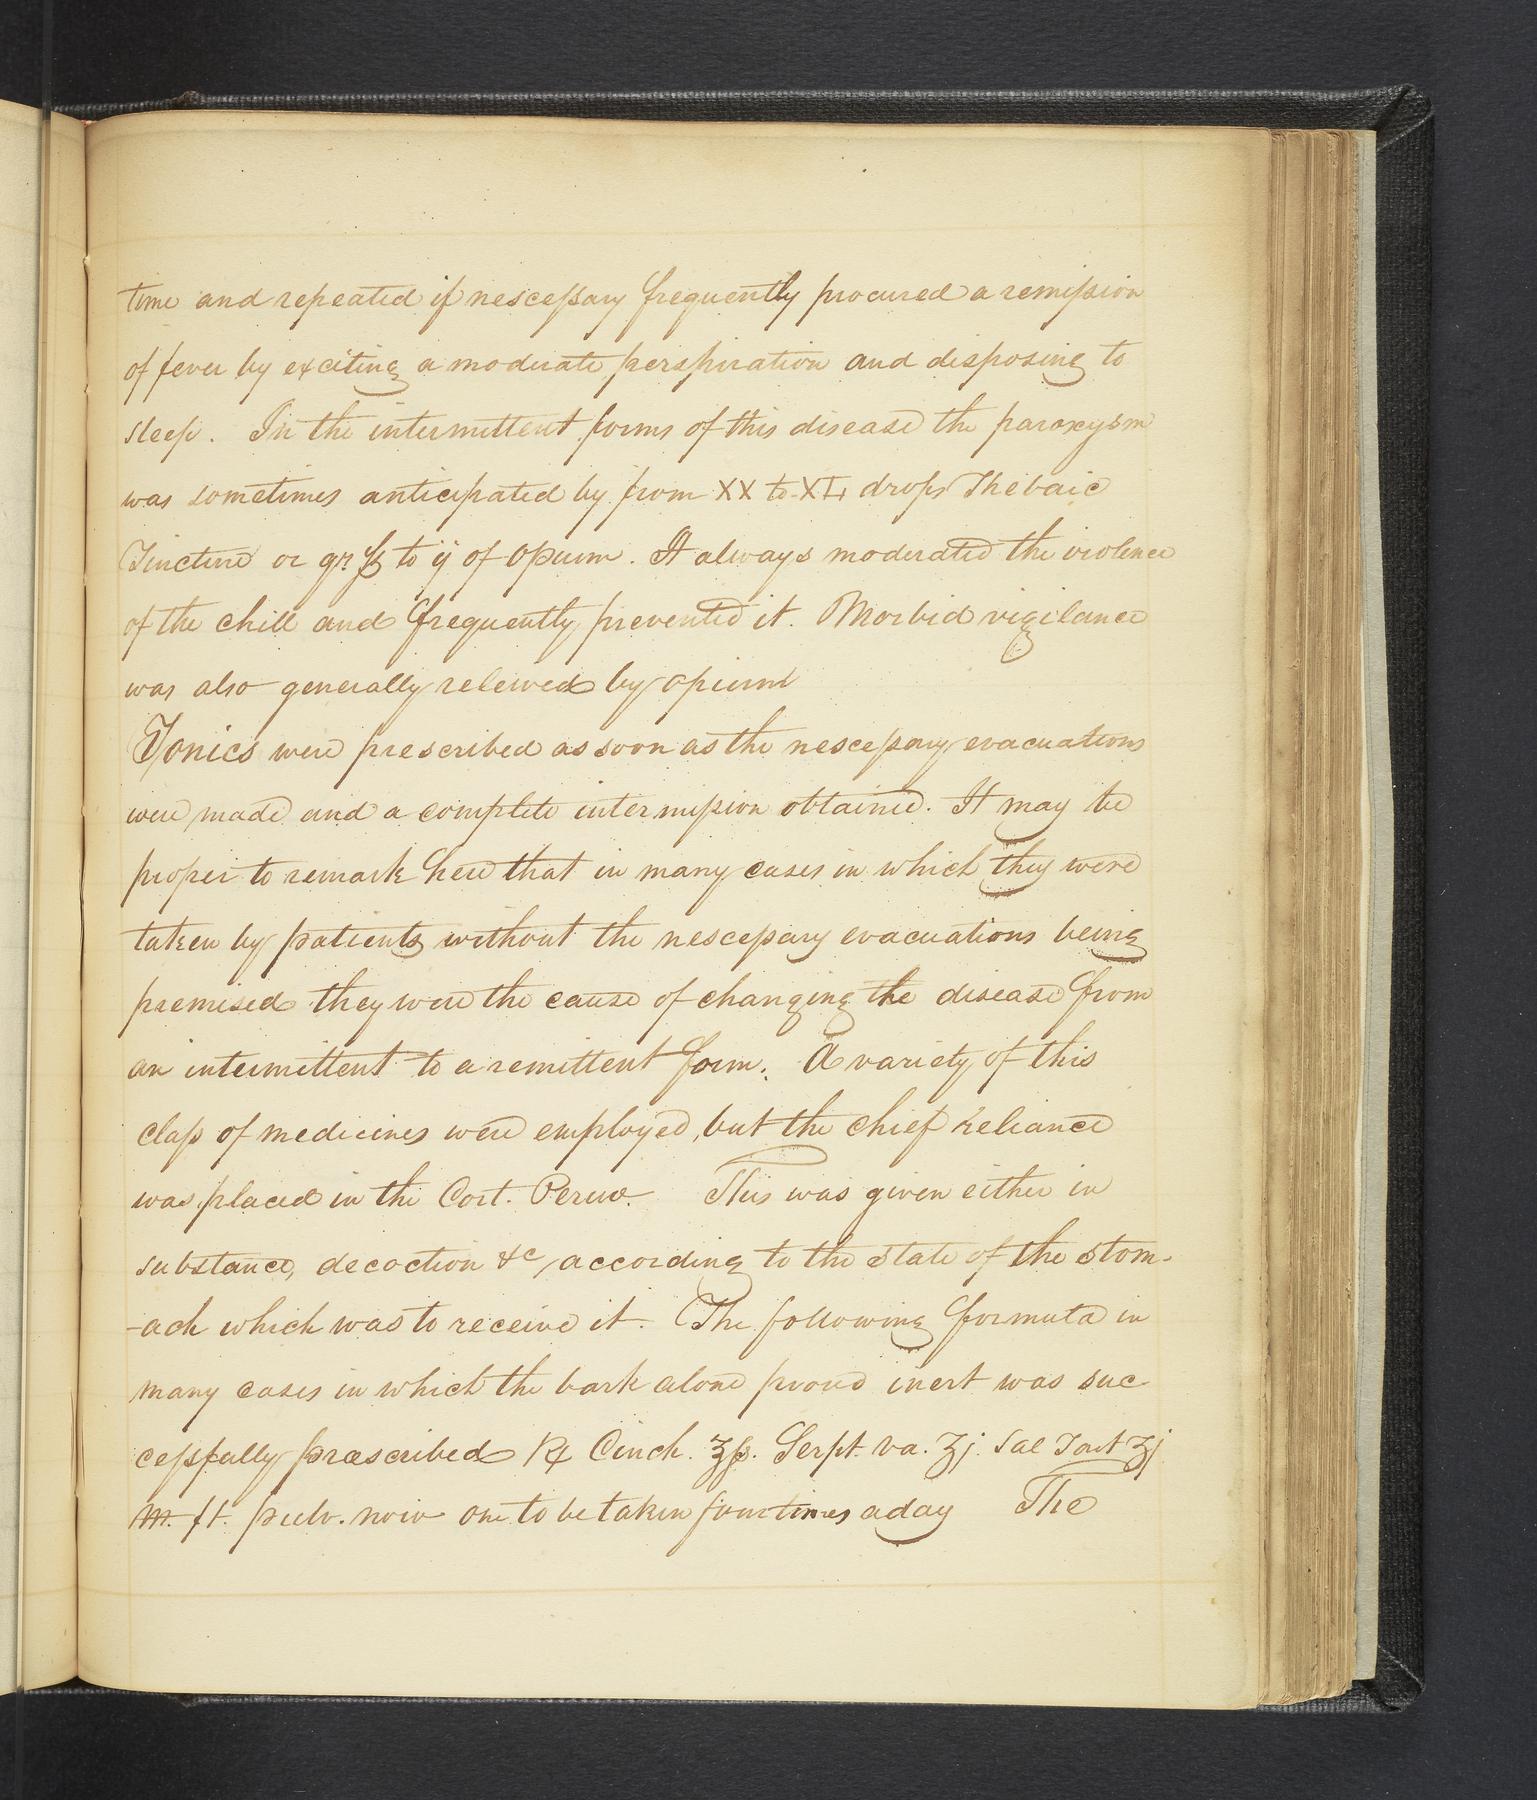 time and repeated if nescessary frequently procured a remission
of fever by exciting a moderate perspiration and disposing to
sleep. In the intermittent forms of this disease the paroxysm
was sometimes anticipated by from XX to XL drops Thebaic
Tincture or gr. ß to ij of opium. It always moderated the violence
of the chill and frequently prevented it. Morbid vigilance
was also generally releived by opium
Tonics were prescribed as soon as the nescessary evacuations
were made and a complete intermission obtained. It may be
proper to remark here that in many cases in which they were
taken by patients without the nescessary evacuations being
premised they were the cause of changing the disease from
an intermittent to a remittent form. A variety of this
class of medicines were employed, but the chief reliance
was placed in the Cort. Peruv. This was given either in
substance, decoction &c, according to the state of the stom-
-ach which was to receive it. The following formula in
many cases in which the bark alone proved inert was suc
cessfully præscribed ℞ Cinch. ʒß. Serpt. va. ʒj. Sal Tart ʒj
M. ft. pulv. noiv one to be taken four times a day The